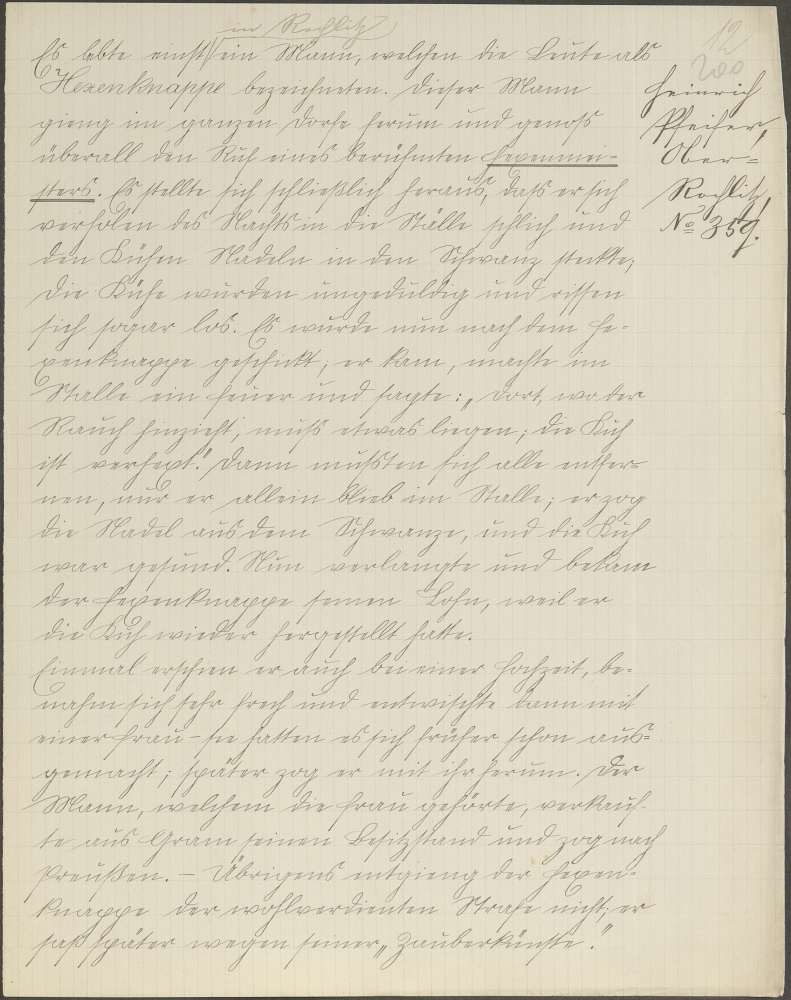 in Rochlitz
12
200
Es lebte einst ein Mann, welchen die Leute als
Hexenknappe bezeichneten. Dieser Mann
gieng im ganzen Dorfe herum und genoß
überall den Ruf eines berühmten Hexenmei-
sters. Es stellte sich schließlich heraus, daß er sich
verholen des Nachts in die Ställe schlich und
den Kühen Nadeln in den Schwanz steckte;
die Kühe wurden ungeduldig und rissen
sich sogar los. Es wurde nun nach dem He-
xenknappe geschickt; er kam, machte im
Stalle ein Feuer und sagte: „Dort, wo der
Rauch hinzieht, muß etwas liegen; die Kuh
ist verhext." Dann mußten sich alle entfer-
nen, nur er allein blieb im Stalle; er zog
die Nadel aus dem Schwanze, und die Kuh
war gesund. Nun verlangte und bekam
der Hexenknappe seinen Lohn, weil er
die Kuh wieder hergestellt hatte.
Einmal erschien er auch bei einer Hochzeit, be-
nahm sich sehr frech und entwischte dann mit
einer Frau – sie hatten es sich früher schon aus-
gemacht; später zog er mit ihr herum. Der
Mann, welchem die Frau gehörte, verkauf-
te aus Gram seinen Besitzstand und zog nach
Preußen. – Übrigens entgieng der Hexen-
knappe der wohlverdienten Strafe nicht; er
saß später wegen seiner „Zauberkünste."
Heinrich
Pfeifer,
Ober-
Rochlitz,
No 359.